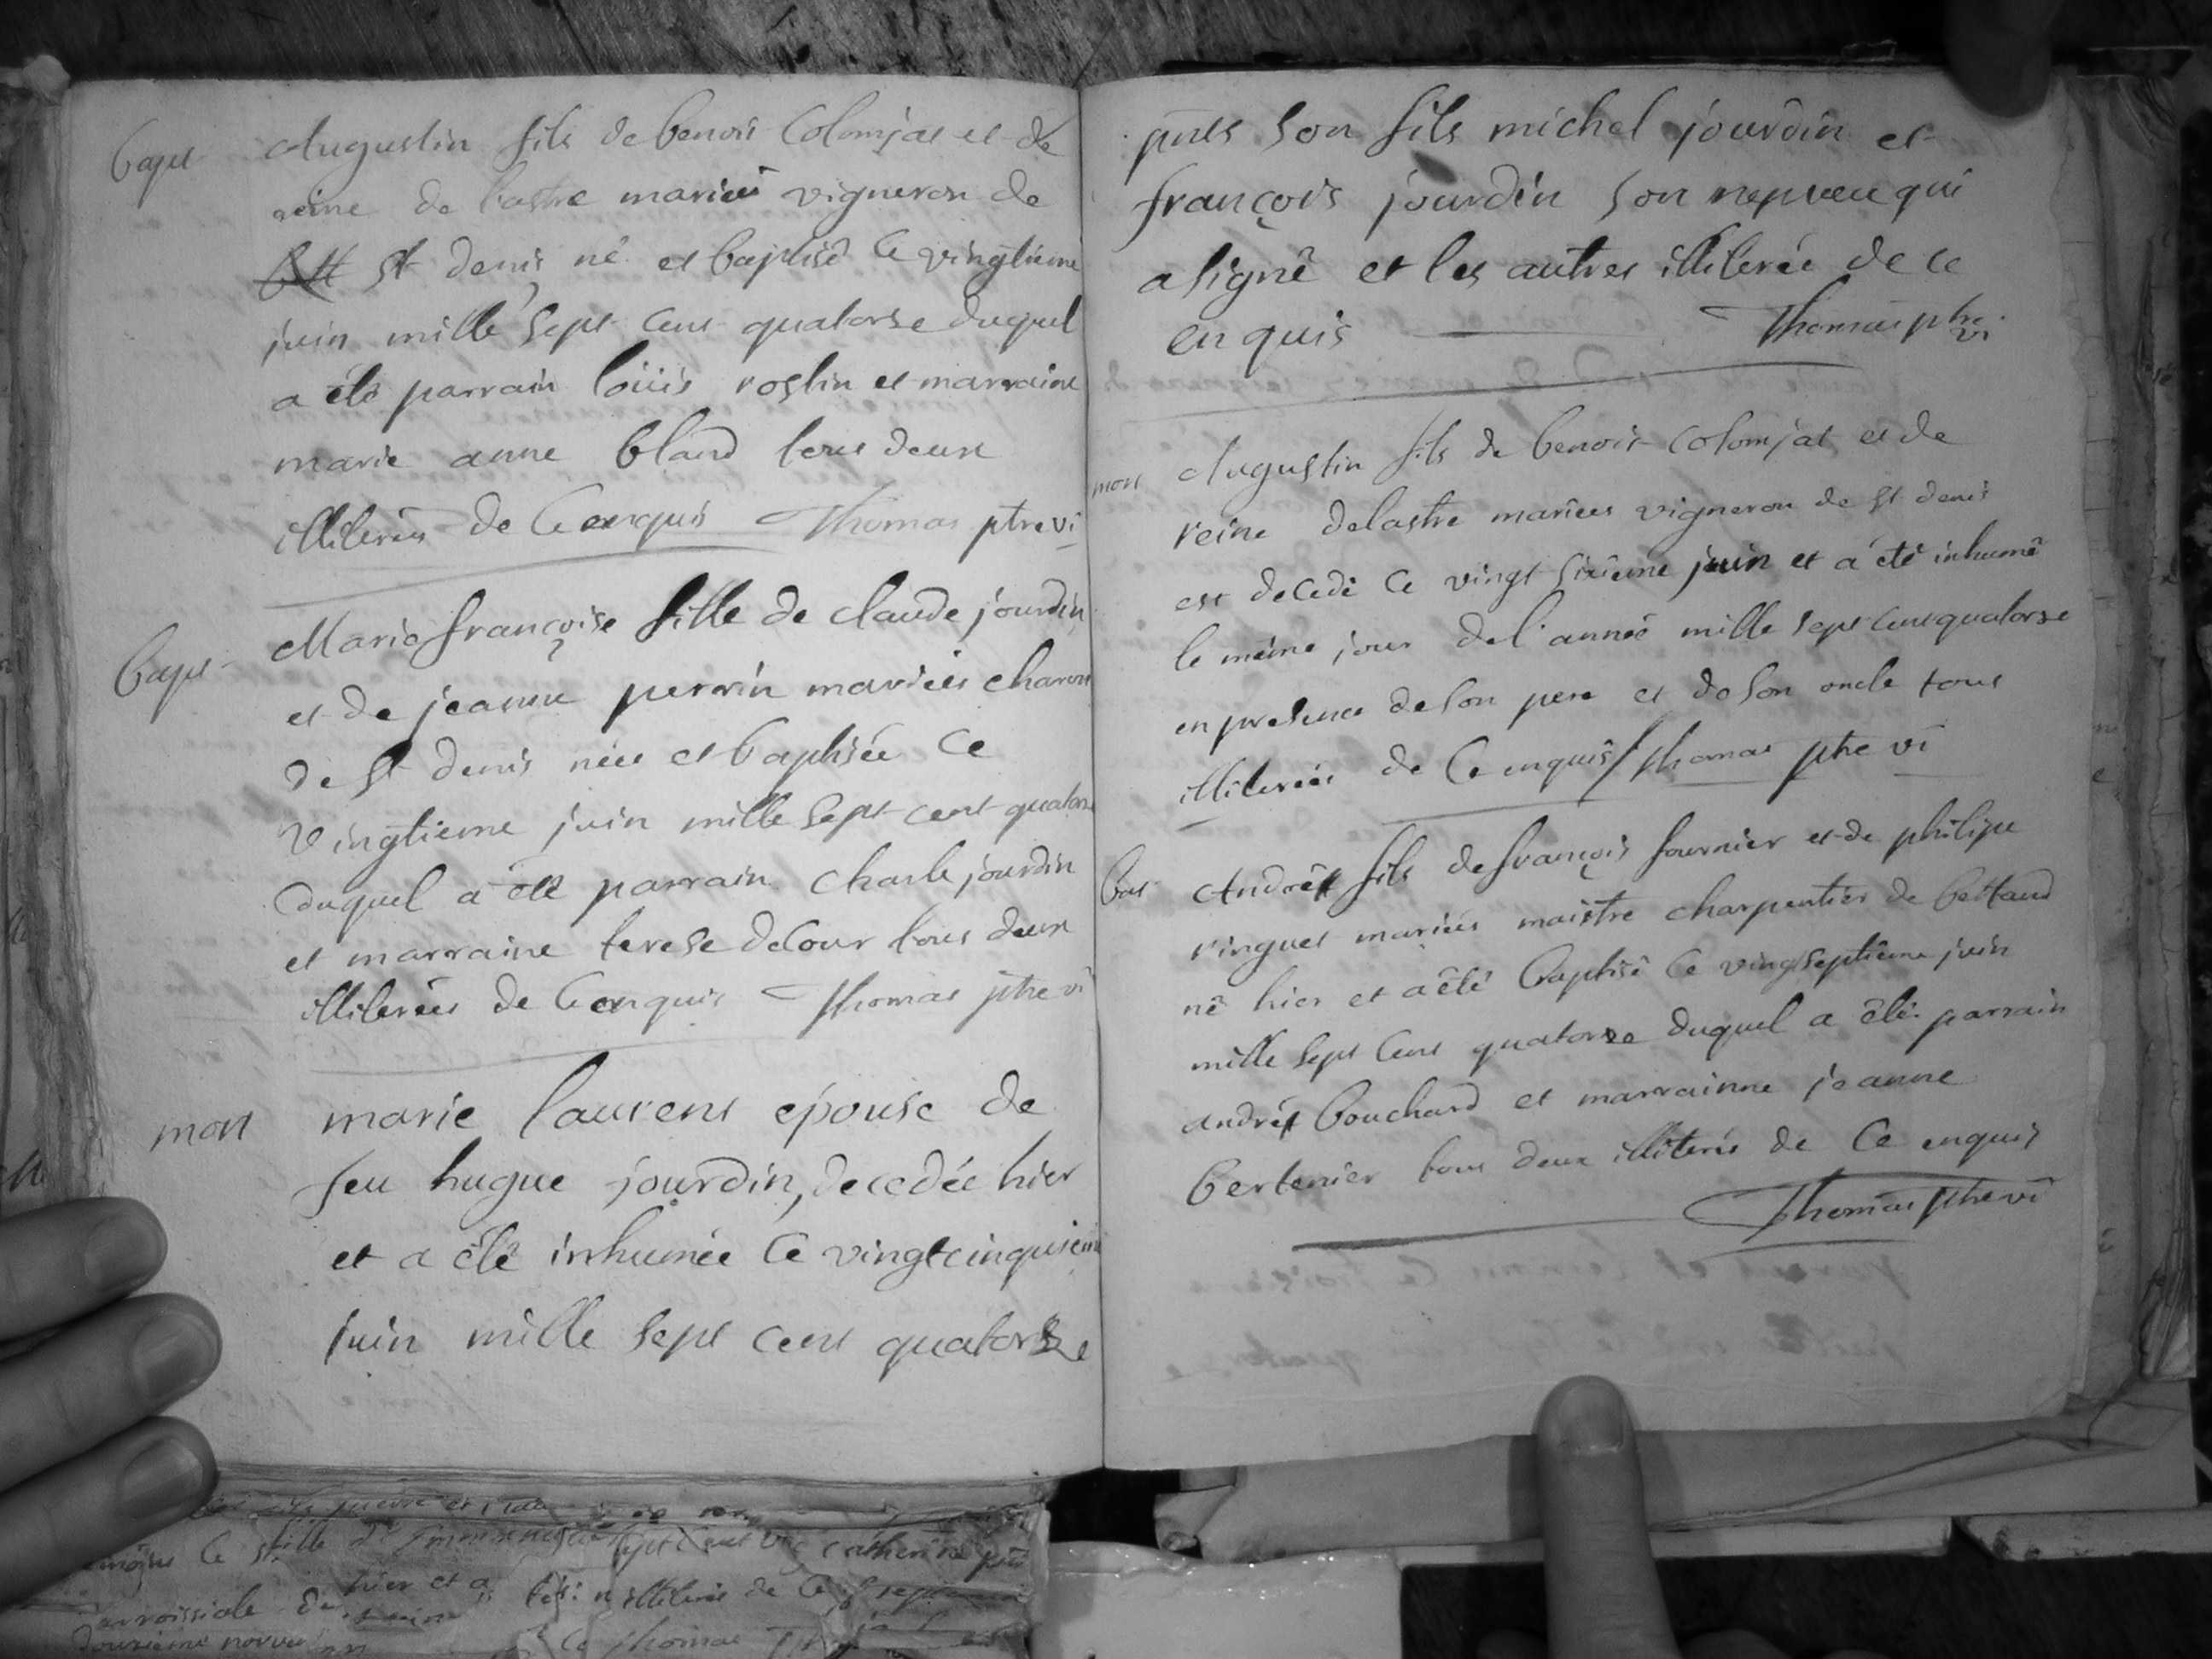 bapt
Augustin fils de benoit Colomjat et de
reine de lastre mariéz vigneron de
st denis né et baptisé ce vingtieme
juin mille sept cent quatorse duquel
a été parrain loüis roslin et marraine
marie anne bland tous deux
illiterés de ce enquis Thomas ptre vi
bapt
Marie françoise fille de claude jourdin
et de jeanne perrin mariéés charon
de st denis née et baptisée ce
vingtieme juin mille sept cent quatorse
duquel a été parrain charle jourdin
et marraine terese decour tous deux
illiterées de ce enquis Thomas ptre vi
mort
marie laurent epouse de
feu hugue jourdin, decedée hier
et a été inhumée ce vingtcinquieme
juin mille sept cent quatorse
pnts son fils michel jourdin et
françois jourdin son nepveu qui
a signé et les autres illiterée de ce
enquis Thomas ptre vi
mort
Augustin fils de benoit Colomjat et de
reine delastre mariees vigneron de st denis
est decedé ce vingt sixieme juin et a été inhumé
le même jour de l'année mille sept cent quatorse
en presence de son pere et de son oncle tous
illiterées de ce enquis Thomas ptre vi
bat
André fils de françois fournier et de philipe
ringuet mariées maistre charpentier de bettand
né hier et a été baptisé ce vingtseptieme juin
mille sept cent quatorse duquel a été parrain
andré bouchard et marrainne jeanne
bertenier tous deux illiterés de ce enquis
Thomas ptre vi